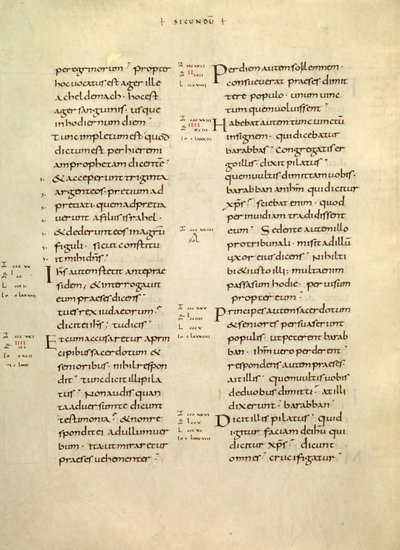 + SECUNDŪ +
peregrinorum propter
hoc vocatus est ager ille
acheldemach · hoc est
ager sanguinis · usque
in hodiernum diem
Tunc impletum est · quod
dictum est per hieremi
am prophetam dicentē
& acceperunt triginta
argenteos · pretium ad
pretiati · quem adpretia
uerunt a filiis israhel ·
& dederunt eos in agrū
figuli · sicut constitu
it mihi dn̄s
Ihs autem stetit ante prae
sidem ; & interrogauit
eum praeses dicens
tu es rex iudaeorum
dicit ei ihs ; tu dicis
Et cum accusaretur a prin
cipibus sacerdotum &
senioribus · nihil respon
dit · tunc dicit illi pila
tus Non audis quan
ta aduersum te dicunt
testimonia & non re
spondit ei ad ullum uer
bum · ita ut miraretur
praeses uehementer
Per diem autem sollemnem ·
consueuerat praeses dimit
tere populo · unum uinc
tum quem uoluissent
Habebat autem tunc uinctū
insignem · qui dicebatur
barabbas Congregatis er
go illis · dixit pilatus
quem uultis dimittam uobis ·
barabban an ihm̄ qui dicitur
xp̄s sciebat enim · quod
per inuidiam tradidissent
eum Sedente autem illo
pro tribunali · misit ad illū
uxor eius dicens Nihil ti
bi & iusto illi ; multa enim
passa sum hodie · per uisum
propter eum
Principes autem sacerdotum
& seniores persuaserunt
populis · ut peterent barab
ban · ihm̄ uero perderent
respondens autem praeses ·
ait illis Quem uultis uobis
de duobus dimitti · at illi
dixerunt barabban
Dicit illis pilatus quid
igitur faciam de ihu qui
dicitur xp̄s dicunt
omnes crucifigatur